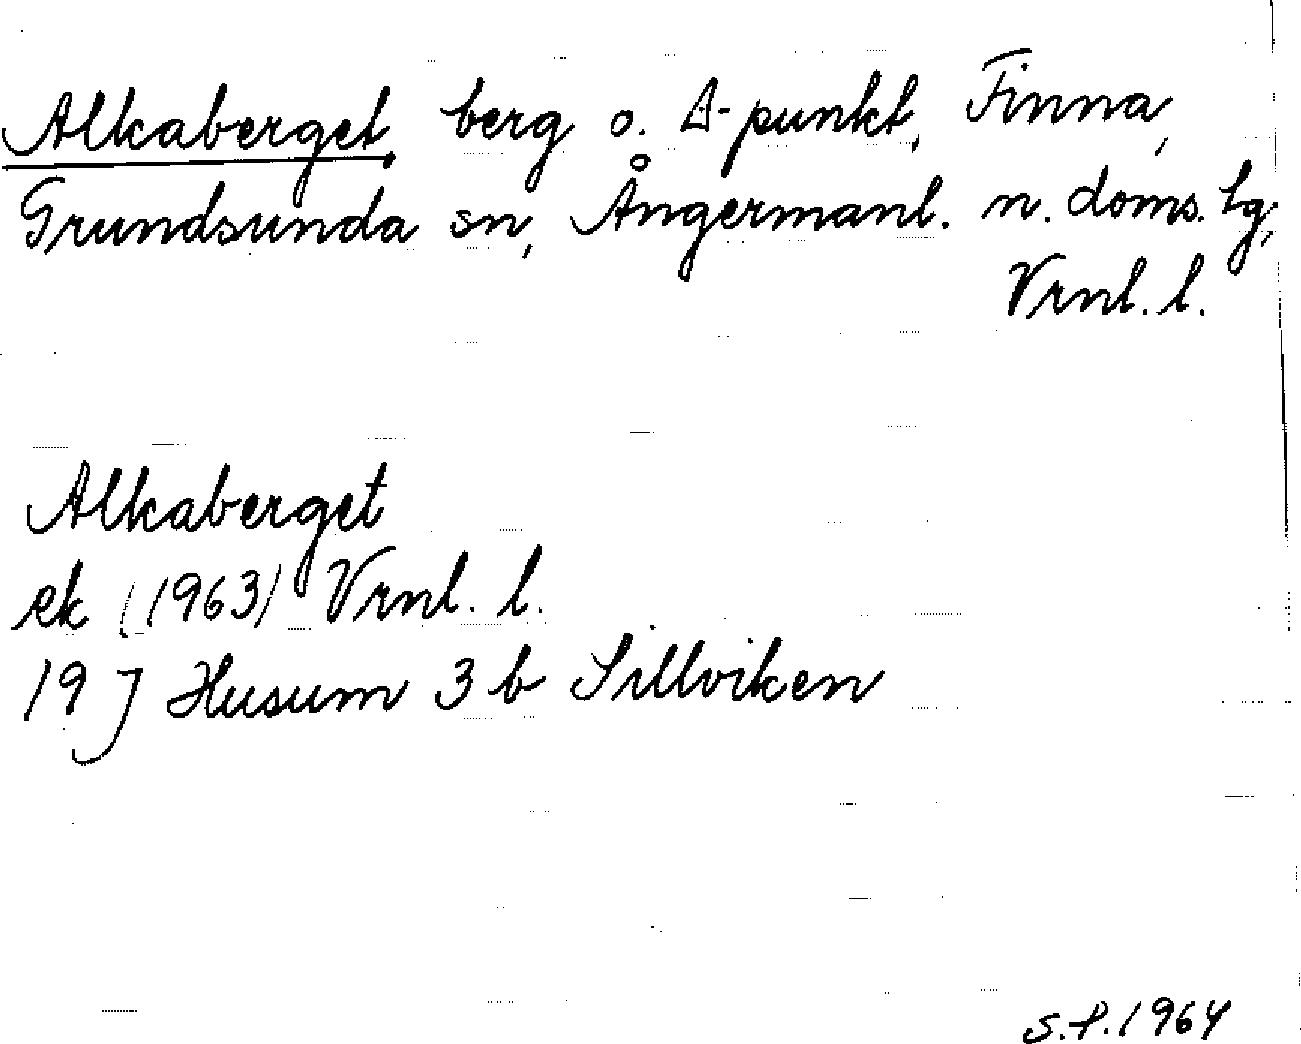 Alkaberget, berg o. Δ-punkt, Finna,
Grundsunda sn, Ångermanl. n. doms. tg,
Vrnl. l.
Alkaberget
ek (1963) Vrnl. l.
19 J Husum 3 b Sillviken
S.P. 1964